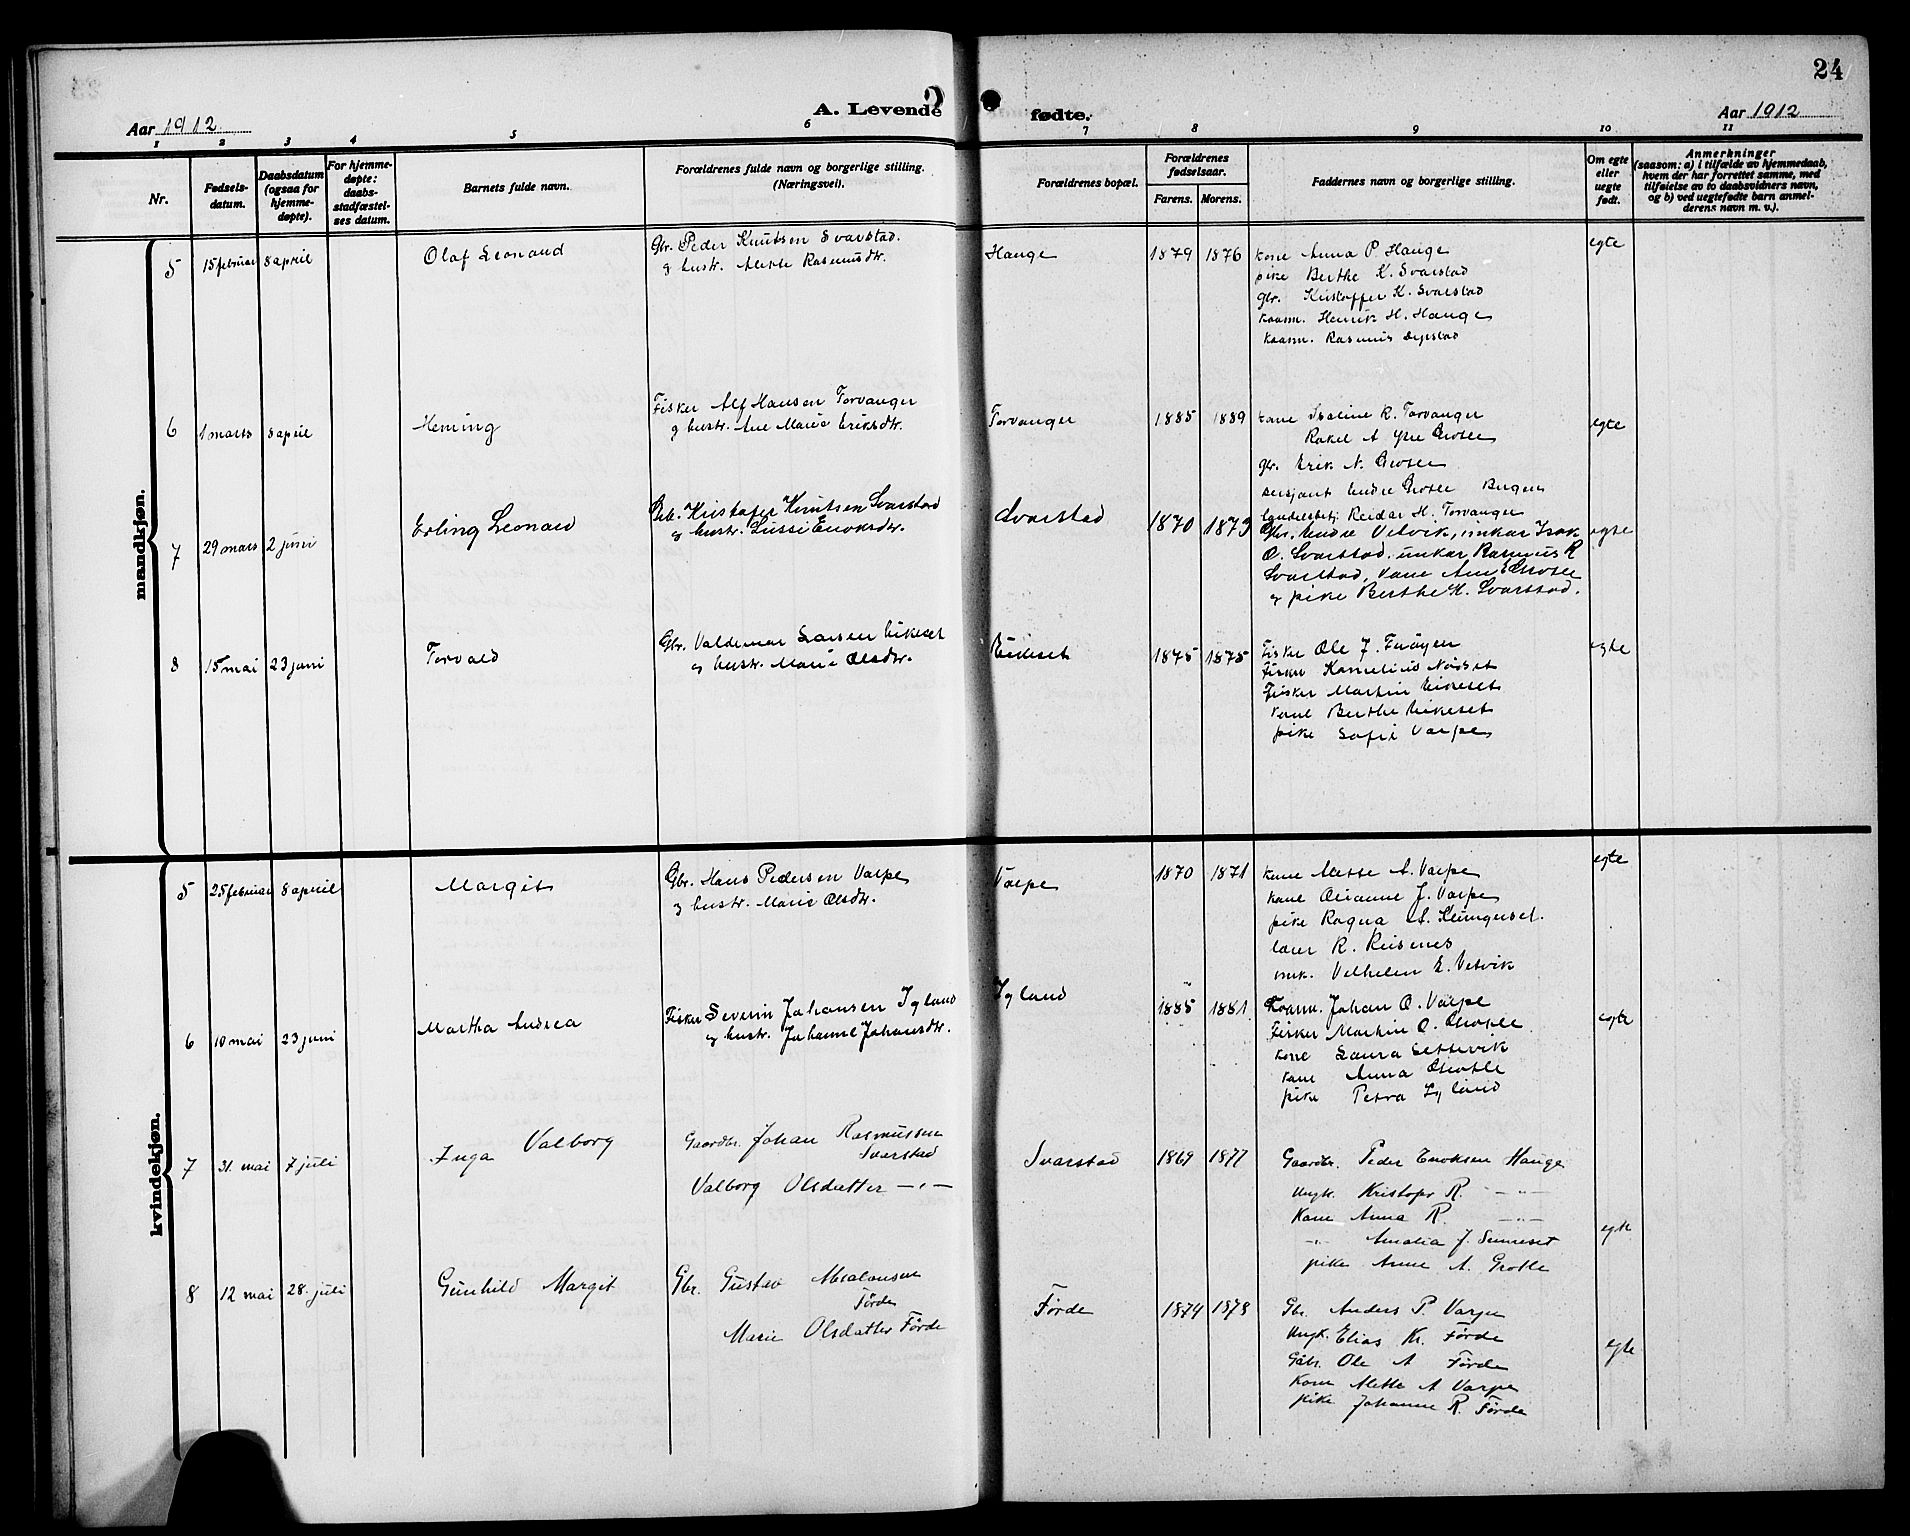 24
Aar 1912
A. Levende fødte.
Aar 1912
1 2 3 4 5 6 7 8 9 10 11
Nr.
Fødsels-
datum.
Daabsdatum
(ogsaa for
hjemme-
døpte).
For hjemme-
døpte:
daabs-
stadfæstel-
ses datum.
Barnets fulde navn.
Forældrenes fulde navn og borgerlige stilling.
(Næringsvei).
Forældrenes bopæl.
Forældrenes
fødselsaar.
Farens. Morens.
Faddernes navn og borgerlige stilling.
Om egte
eller
uegte
født.
Anmerkninger
(saasom: a) i tilfælde av hjemmedaab,
hvem der har forrettet samme, med
tilføielse av to daabsvidners navn,
og b) ved uegtefødte barn anmel-
derens navn m. v.).
mandkjøn.
5 15 februar 8 april
Olaf Leonard
Gbr. Peder Knutsen Svarstad.
og hustr. Mette Rasmusdtr.
Hauge
1879 1876
kone Anna P. Hauge
pike Berthe K. Svarstad
gbr. Kristoffer K. Svarstad
kaarm. Henrik H. Hauge
kaarm. Rasmus
egte
6 1 mars 8 april
Heming
Fisker Alf Hansen Torvanger
og hustr. Ane Marie Eriksdtr.
Torvanger
1885 1889
kone Isaline R. Torvanger
Rakel A Ytre Grotle
gbr. Erik N. Grotle
sersjant Endre Grotle Bergen
Reidar H. Torvanger
egte
7 29 mars 2 juni
Erling Leonard
Gbr. Kristofer Knutsen Svarstad
og hustr. Lussi Enoksdtr.
Svarstad
1870 1873
Gbr. Endre Vetvik, unkar Isak
O. Svarstad, unkar Rasmus R
Svarstad, kone Ane E Grotle
og pike Berthe K. Svarstad.
egte
8 15 mai 23 juni
Torvald
Gbr. Valdemar Larsen Eikeset
og hustr. Marie Olsdtr.
Eikeset
1875 1875
Fisker Ole J.
Fisker Kornelius
Fisker Martin Eikeset
kone Berthe Eikeset
pike Sofie Varpe
egte
kvindekjøn.
5 25 februar 8 april
Margit
Gbr. Hans Pedersen Varpe
og hustr. Marie Olsdtr.
Varpe
1870 1871
kone Mette A. Varpe
kone Oleanne J. Varpe
pike Ragna A. Klungreset.
lærer R. Reisenes
unk. Vilhelm E. Vetvik
egte
6 10 mai 23 juni
Martha Andrea
Fisker Severin Johansen Igland
og hustr. Johanne Johansdtr.
Igland
1885 1881
Kaarm. Johan O. Varpe
Fisker Martin O. Grotle
kone Laura
kone Anna Grotle
pike Petra Igland
egte
7 31. mai 7 juli
Inga Valborg
Gaardbr. Johan Rasmussen
Svarstad
Valborg Olsdatter — „ —
Svarstad
1869 1877
Gaardbr. Peder Enoksen Hauge
Ungk. Kristofer R. — „ —
Kone Anna R. — „ —
— „ Amalia J.
pike Anne A. Grotle
egte
8 12 mai 28. juli
Gunhild Margit
Gbr. Gustav Absalonsen
Førde
Marie Olsdatter Førde
Førde
1874 1878
Gbr. Anders P. Varpe
Ungk. Elias Kr. Førde
Gbr. Ole A Førde
Kone Mette A Varpe
pike Johanne R. Førde
egte